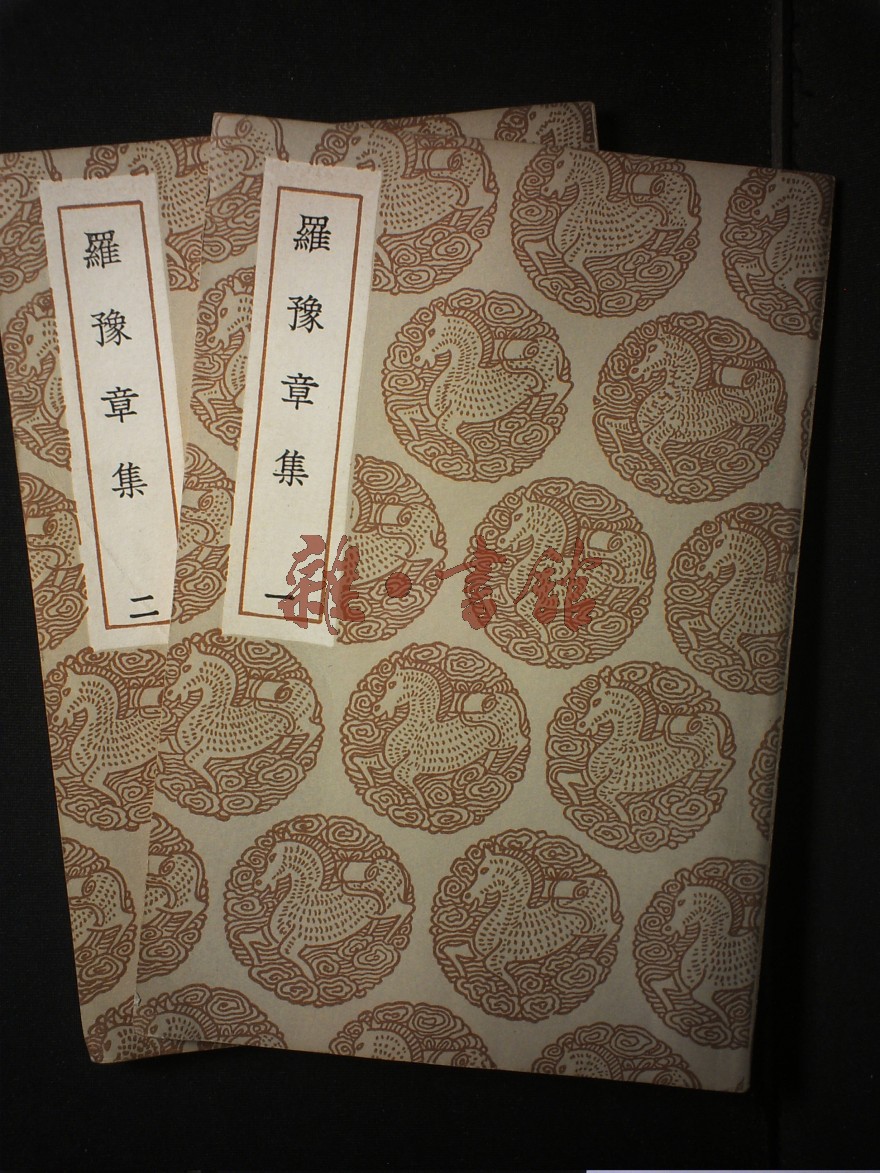 羅豫章集
一
羅豫章集
二
雜·書館